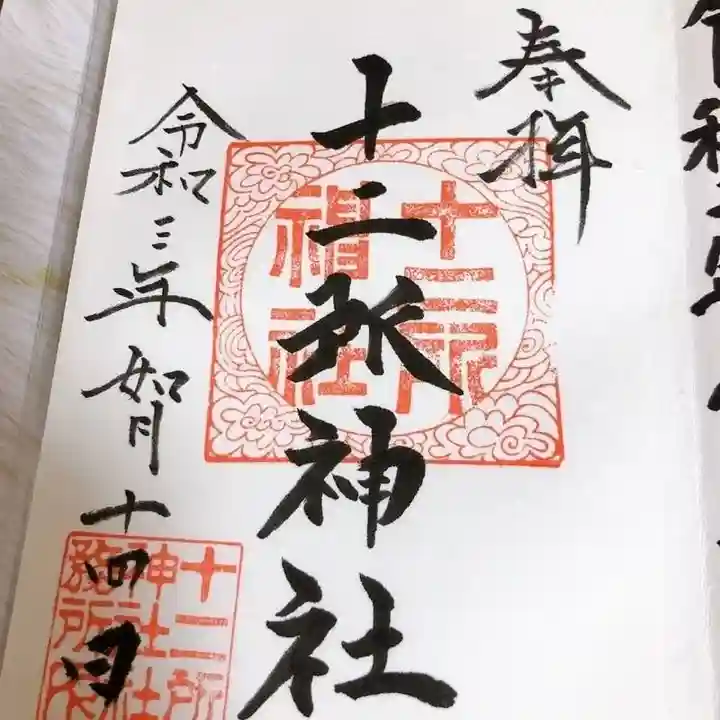 奉拝
十二所神社
令和三年如月十四日
十二所
神社
十二所
神社社
務所